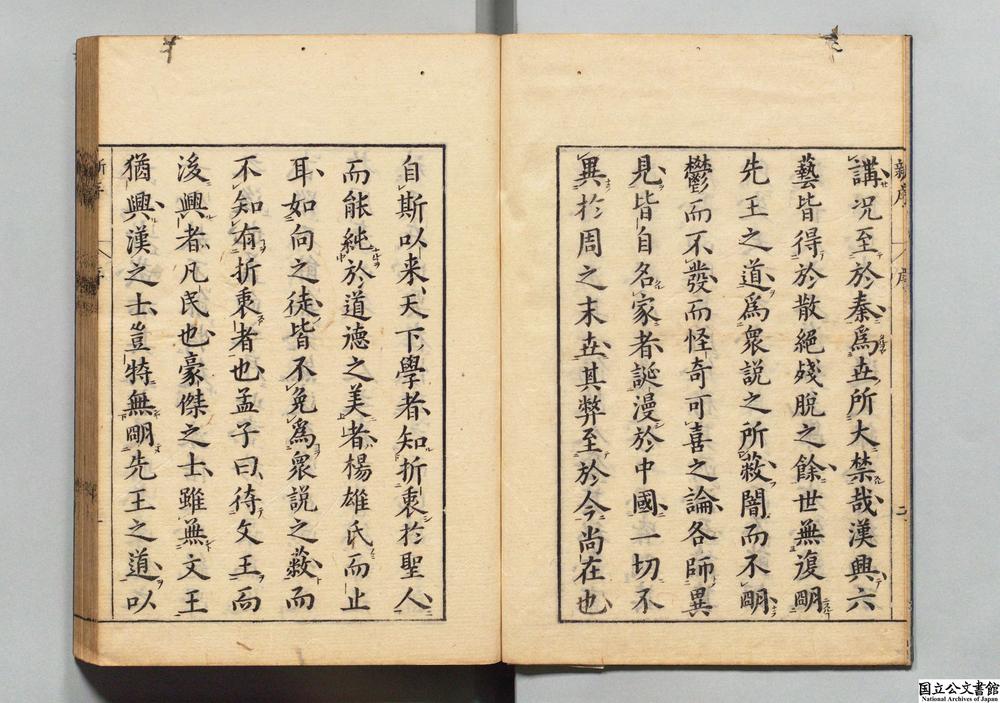 講况至於秦爲世所大禁哉漢興六
藝皆得於散絕殘脫之餘世無復明
先王之道爲衆說之所蔽闇而不明
鬱而不發而怪奇可喜之論各師異
見皆自名家者誕漫於中國一切不
異於周之末世其弊至於今尚在也
自斯以来天下學者知折衷於聖人
而能純於道德之美者楊雄氏而止
耳如向之徒皆不免爲衆說之蔽而
不知有折衷者也孟子曰待文王而
後興者凡民也豪傑之士雖無文王
猶興漢之士豈特無明先王之道以
新序
序
二
国立公文書館
National Archives of Japan